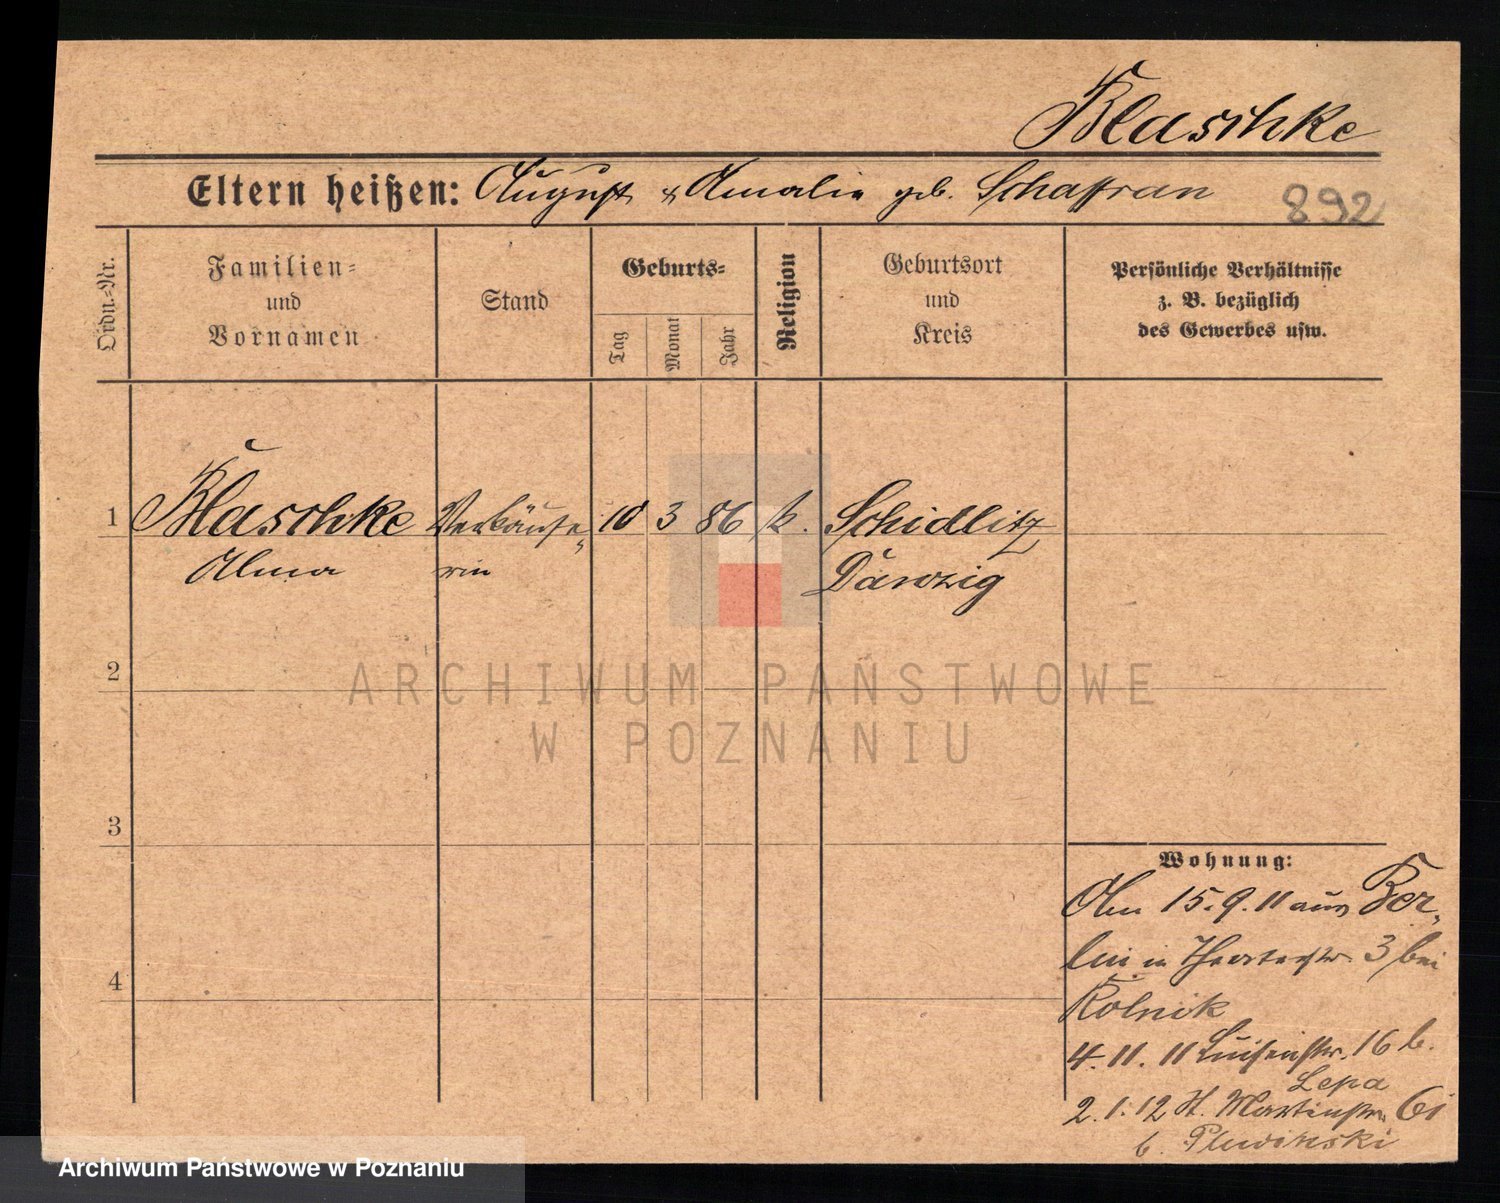 Blaschke
Eltern heißen: August & Amalie geb. Schaffran 892
Ordn.-Nr.
Familien- und Vornamen
Stand
Geburts-
Tag
Monat
Jahr
Religion
Geburtsort und Kreis
Persönliche Verhältnisse
z. B. bezüglich
des Gewerbes usw.
1 Blaschke Verkäufe- 10 3 86 k. Schidlitz
Alma rin Danzig
2
ARCHIWUM PAŃSTWOWE
W POZNANIU
3
Wohnung:
Am 15.9.11 aus Ber-
lin in Theaterstr. 3 bei
4
Kolnik
4.11.11 Luisenstr. 16 b.
Lepa
2.1.12 St. Martinstr. 61
b.
Archiwum Państwowe w Poznaniu